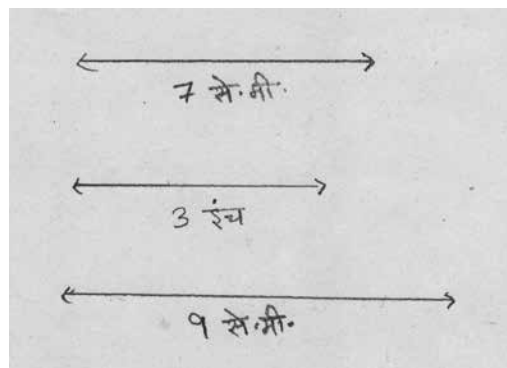 7 से.मी.
3 इंच
9 से.मी.